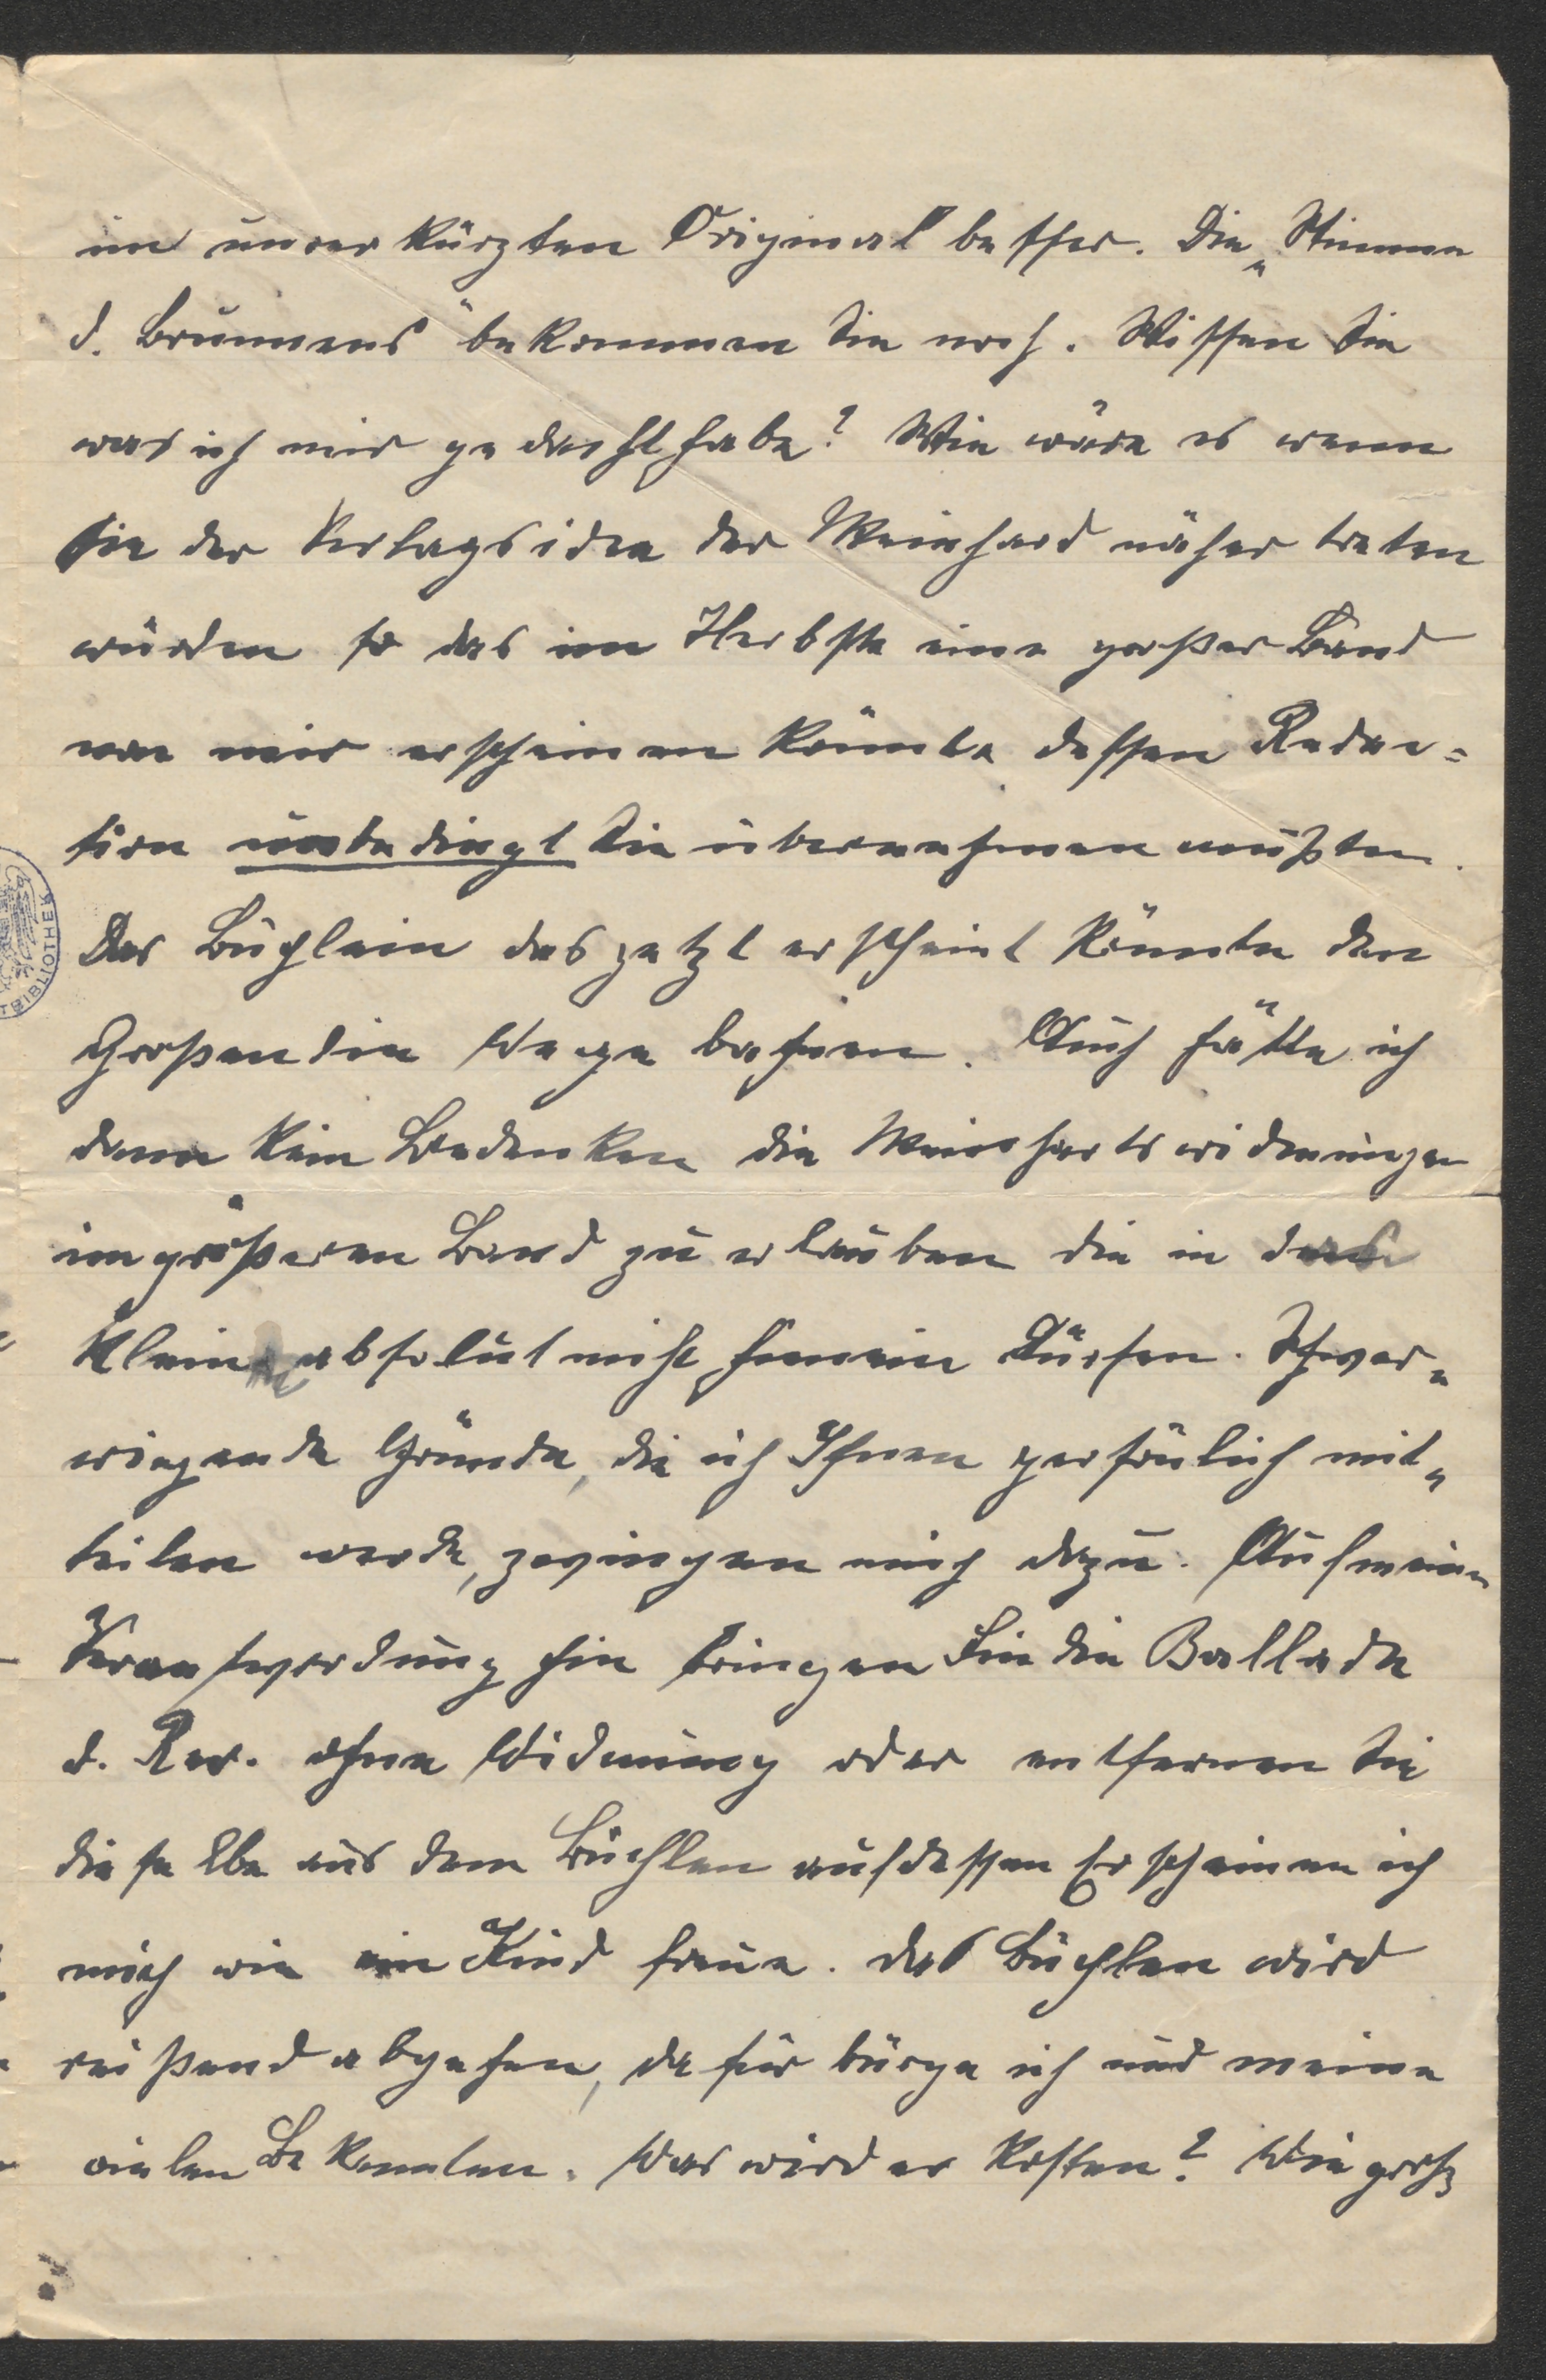 im unverkürzten Original besser. Die „Stimmen
d. Brunnens" bekommen Sie noch. Wissen Sie
was ich mir gedacht habe? Wie wäre es wenn
Sie der Verlagsidee der Meinhard näher treten
würden so das im Herbste eine großer Band
von mir erscheinen könnte dessen Redac=
tion unbedingt Sie übernehmen müßten.
Das Büchlein das jetzt erscheint könnte den
Großen die Wege bahnen. Auch hätte ich
dann kein Bedenken die Meinhartswidmungen
im größeren Band zu erlauben die in das
Kleine absolut nicht hinein dürfen. Schwer„
wiegende Gründe, die ich Ihnen persönlich mit„
teilen werde, zwingen mich dazu. Auf meine
Verantwordung hin bringen Sie die Ballade
d. Rev. ohne Widmung oder entfernen Sie
dieselbe aus dem Büchlen auf dessen Erscheinen ich
mich wie ein Kind freue. Das Büchlen wird
reißend abgehen, dafür bürge ich und meine
vielen Bekannten. Was wird es kosten? Wie groß
BIBLIOTHEK